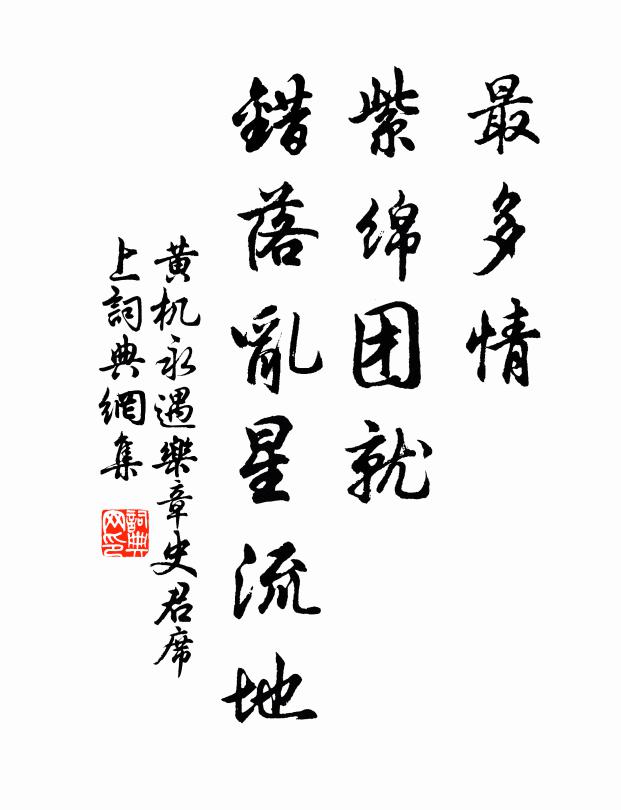 最多情
紫绵团就
錯落亂星流地
黄机永遇樂章史君席
上詞典網集
詞典
网印